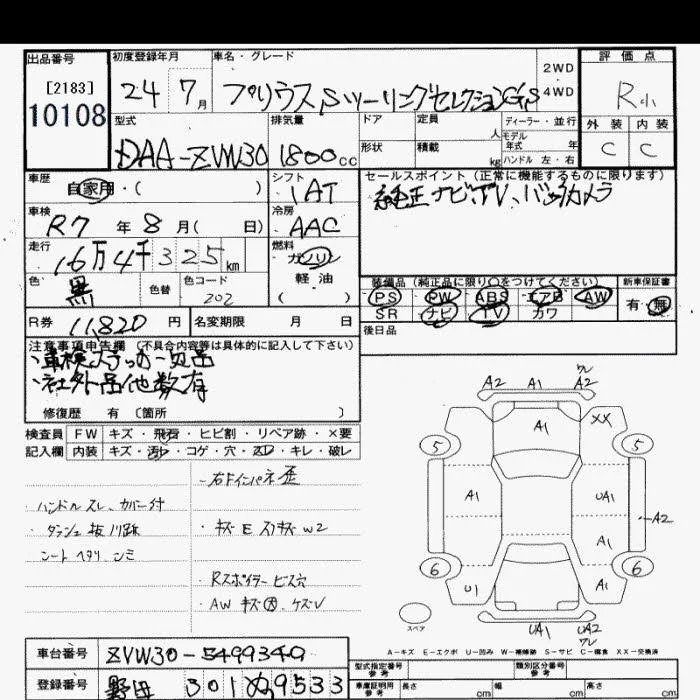 出品番号 初度登録年月 車名・グレード 評価点
[2183] 24年 7月 プリウス Sツーリングセレクション G's 2WD 4WD R小
10108
型式 排気量 ドア 定員 人 ディーラー・並行 外装 内装
DAA-ZVW30 1800cc 形状 積載 kg モデル年式 年 ハンドル 左・右 C C
車歴 自家用・( ) シフト 1AT セールスポイント(正常に機能するものに限ります)
純正ナビ、TV、バックカメラ
車検 R7年 8月( 日) 冷房 AAC
走行 16万4千325km 燃料 ガソリン 軽油 ( )
色 黒 色替 色コード 202
装備品(純正品に限り○をつけてください) 新車保証書
PS PW ABS エアB AW 有・無
SR ナビ TV カワ
R券 11820円 名変期限 月 日 後日品
注意事項申告欄(不具合内容等は具体的に記入して下さい)
・車検ステッカー欠品
・社外品他数有
修復歴 有〔箇所 〕
検査員 FW キズ・飛石・ヒビ割・リペア跡・×要
記入欄 内装 キズ・汚れ・コゲ・穴・スレ・キレ・破レ
・右Fインパネ歪
・ハンドルスレ、カバー付
・ダッシュ板ノリ跡 ・キズ E スリキズ W2
・シートヘタリ、シミ
・Rスポイラービス穴
・AW キズ大、ケズレ
A2 A1 ワレ A2
A1 XX
5 5
A1 UA1
A2
A1
6 6
U1 A1
スペア UA1 UA2 ワレ
A-キズ E-エクボ U-凹み W-補修跡 S-サビ C-腐食 XX-交換済
車台番号 ZVW30-5499349
登録番号 301 ぬ 9533
型式指定番号 参考 類別区分番号 参考
車庫証明用 参考 長さ cm 幅 cm 高さ cm